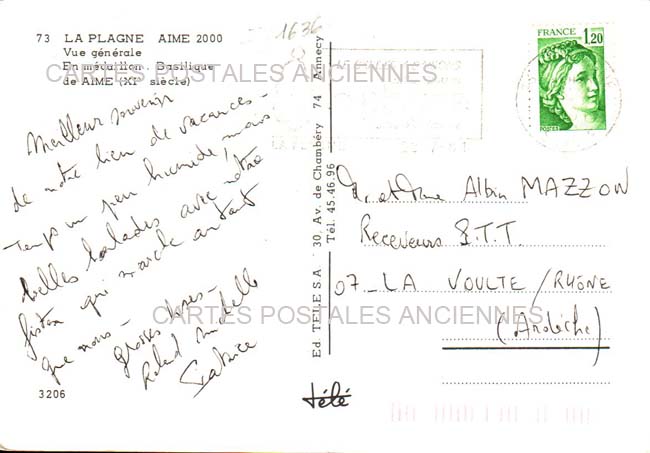 73 LA PLAGNE AIME 2000
Vue générale
En médaillon. Basilique
de AIME (XIe siècle)
1636
CARTES POSTALES ANCIENNES
Meilleur souvenir
de notre lieu de vacances -
Temps un peu humide, mais
belles balades avec notre
fiston qui marche autant
que nous -
grosses bises -
Roland Michelle
3206
Ed. TELESA 30, Av. de Chambéry 74 Annecy
Tél. 45.46.96
télé
FRANCE
1,20
POSTES
Albin MAZZON
Receveurs P.T.T.
07_LA VOULTE/RHONE
(Ardèche)
CARTES POSTALES ANCIENNES